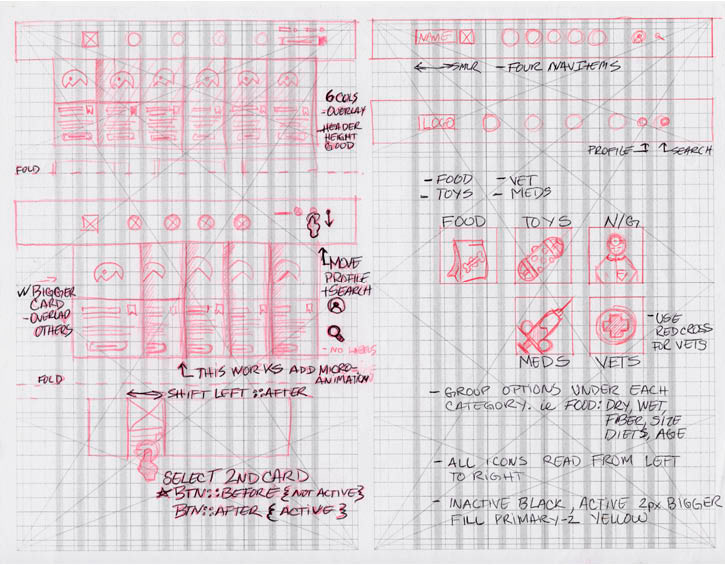 6 COLS
- OVERLAY
- HEADER
HEIGHT
GOOD
FOLD
MOVE
PROFILE
+ SEARCH
W/ BIGGER
CARD
- OVERLAP
OTHERS
- NO LABELS
THIS WORKS ADD MICRO-
ANIMATION
FOLD
SHIFT LEFT ::AFTER
SELECT 2ND CARD
BTN::BEFORE {NOT ACTIVE}
BTN::AFTER {ACTIVE}
NAME
SMLR - FOUR NAV ITEMS
LOGO
PROFILE SEARCH
- FOOD - VET
- TOYS - MEDS
FOOD TOYS N/G
MEDS VETS
- USE
RED CROSS
FOR VETS
- GROUP OPTIONS UNDER EACH
CATEGORY. ie FOOD: DRY, WET,
FIBER, SIZE
DIETS, AGE
- ALL ICONS READ FROM LEFT
TO RIGHT
- INACTIVE BLACK, ACTIVE 2px BIGGER
FILL PRIMARY-2 YELLOW